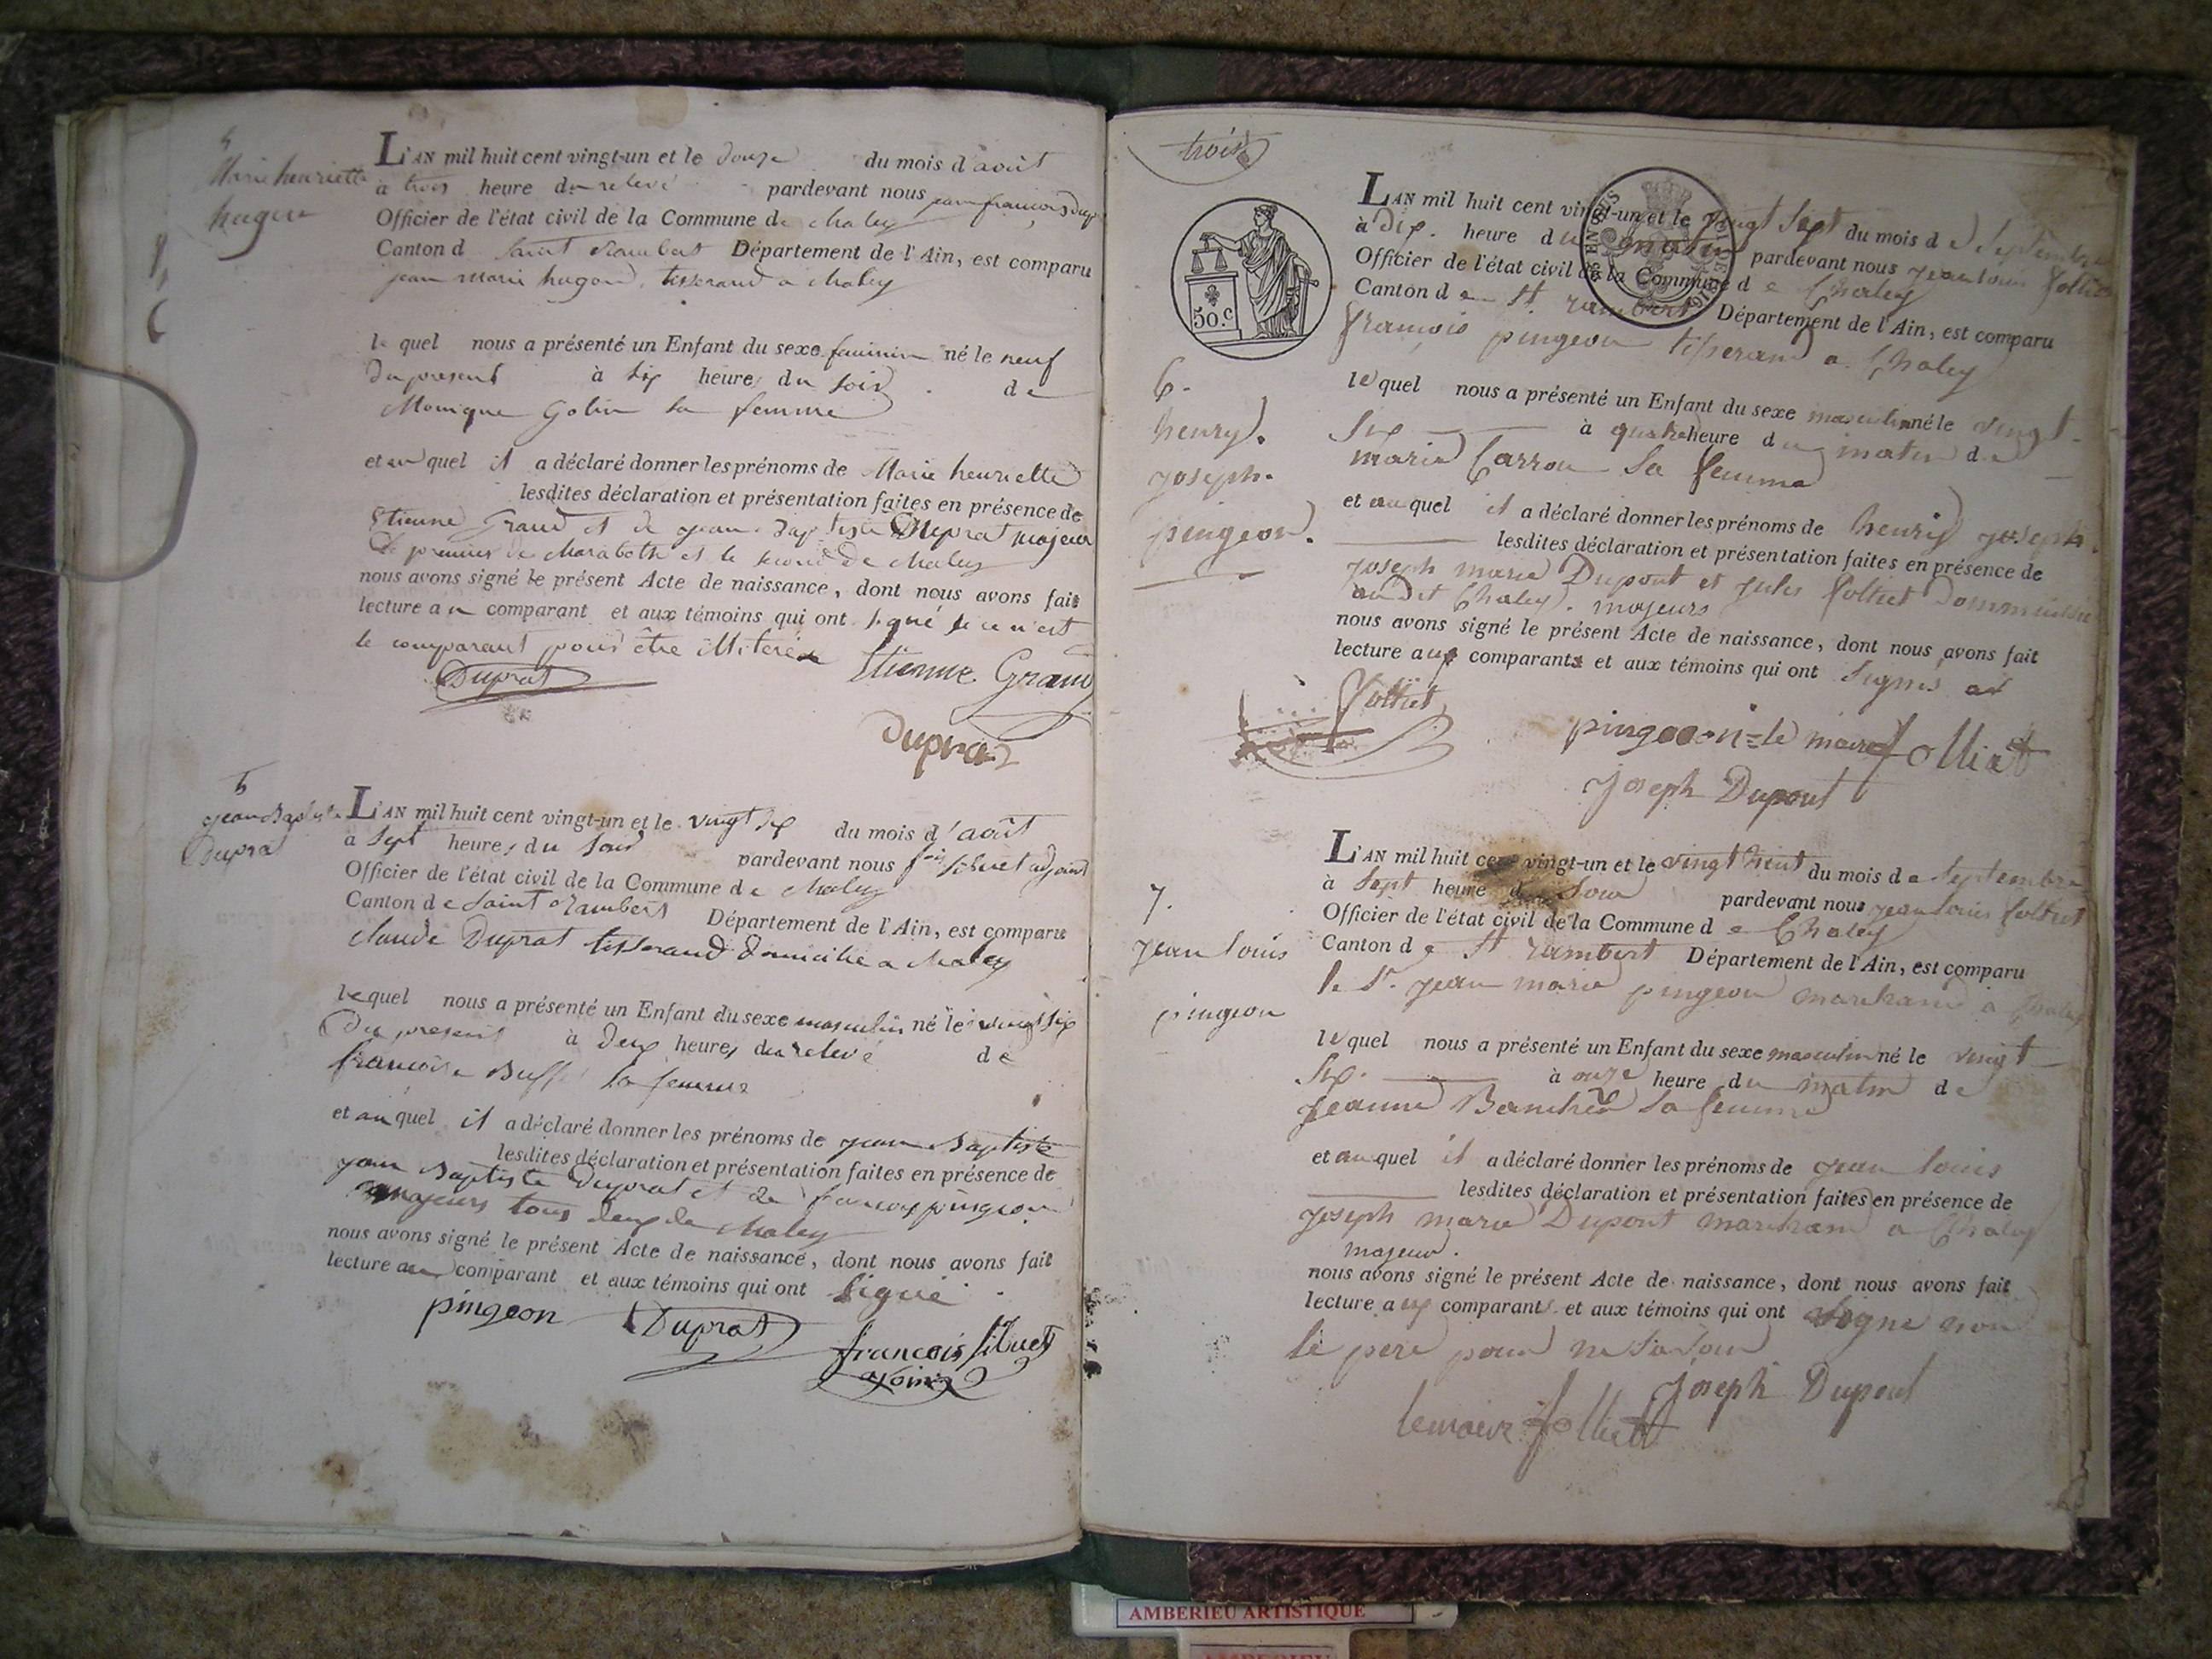 4
Marie henriette
hugon
L'AN mil huit cent vingt-un et le douze du mois d'août
à trois heure du relevé pardevant nous jean françois
Officier de l'état civil de la Commune de chaley
Canton d Saint Rambert Département de l'Ain, est comparu
jean marie hugon tisserand a chaley
le quel nous a présenté un Enfant du sexe feminin né le neuf
du present à six heures du soir de
Monique Golin sa femme
et au quel il a déclaré donner les prénoms de Marie henriette
lesdites déclaration et présentation faites en présence de
Etienne Grand et de jean Baptiste Duprat majeur
le premier de et le second de chaley
nous avons signé le présent Acte de naissance, dont nous avons fait
lecture au comparant et aux témoins qui ont signé
le comparant pour être
Duprat Etienne Grand
Dupraz
5
jean Baptiste
Duprat
L'AN mil huit cent vingt-un et le vingt six du mois d'août
à sept heures du soir pardevant nous fois Sibuet adjoint
Officier de l'état civil de la Commune de chaley
Canton de Saint Rambert Département de l'Ain, est comparu
claude Duprat tisserand domicilié a chaley
lequel nous a présenté un Enfant du sexe masculin né le vingt six
du present à deux heures du relevé de
françoise Buffe sa femme
et au quel il a déclaré donner les prénoms de jean Baptiste
lesdites déclaration et présentation faites en présence de
jean Baptiste Duprat et de françois pingeon
majeurs tous deux de chaley
nous avons signé le présent Acte de naissance, dont nous avons fait
lecture au comparant et aux témoins qui ont signé
pingeon Duprat
françois Sibuet
ajoint
trois
50.c
L'AN mil huit cent vingt-un et le vingt sept du mois de septembre
à dix heure du matin pardevant nous jean louis folliet
Officier de l'état civil de la Commune de Chaley
Canton de St rambert Département de l'Ain, est comparu
françois pingeon tisserand a Chaley
6.
henry.
joseph.
pingeon.
le quel nous a présenté un Enfant du sexe masculin né le vingt
six à quatre heure du matin de
marie Carron sa femme
et au quel il a déclaré donner les prénoms de henrij joseph.
lesdites déclaration et présentation faites en présence de
joseph marie Dupont et jules folliet
audit Chaley. majeurs
nous avons signé le présent Acte de naissance, dont nous avons fait
lecture aux comparants et aux témoins qui ont signés
folliet
pingeon le maire folliet
joseph Dupont
7.
jean louis
pingeon
L'AN mil huit cent vingt-un et le vingt huit du mois de septembre
à sept heure du soir pardevant nous jean louis folliet
Officier de l'état civil de la Commune de Chaley
Canton de St rambert Département de l'Ain, est comparu
le Sr. jean marie pingeon marchand a Chaley
le quel nous a présenté un Enfant du sexe masculin né le vingt
six. à onze heure du matin de
jeanne sa femme
et au quel il a déclaré donner les prénoms de jean louis
lesdites déclaration et présentation faites en présence de
joseph marie Dupont marchand a Chaley
majeur.
nous avons signé le présent Acte de naissance, dont nous avons fait
lecture aux comparants et aux témoins qui ont signé non
le pere pour ne savoir
joseph Dupont
lemaire folliet
AMBERIEU ARTISTIQUE
AMBERIEU